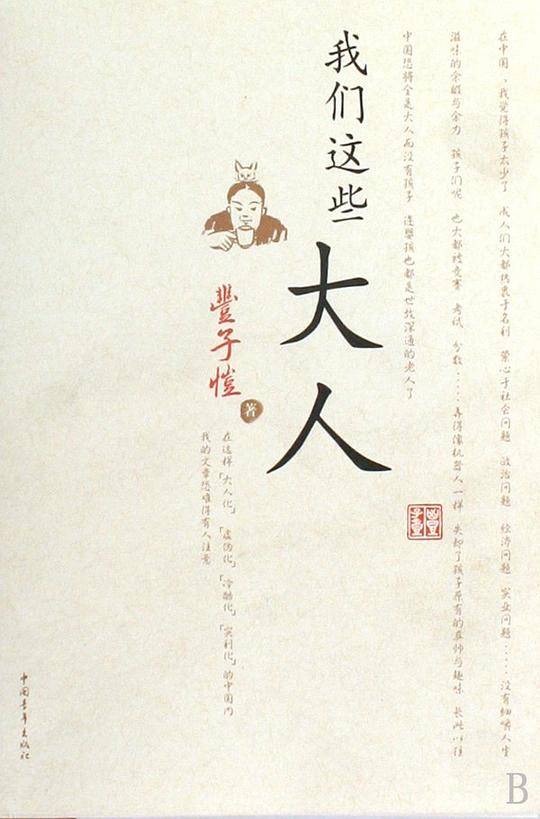 在中国，我觉得孩子太少了 成人们大都热衷于名利 萦心于社会问题 政治问题 经济问题 实业问题……没有细嚼人生
滋味的余暇与余力 孩子们呢 也大都被竞赛 考试 分数……弄得像机器人一样 失却了孩子原有的真率与趣味 长此以往
中国恐将全是大人而没有孩子 连婴孩也都是世故深通的老人了
我们这些
大人
豐子愷
著
在这样「大人化」「虚伪化」「冷酷化」「实利化」的中国内
我的文章恐难得有人注意
中国青年出版社
B